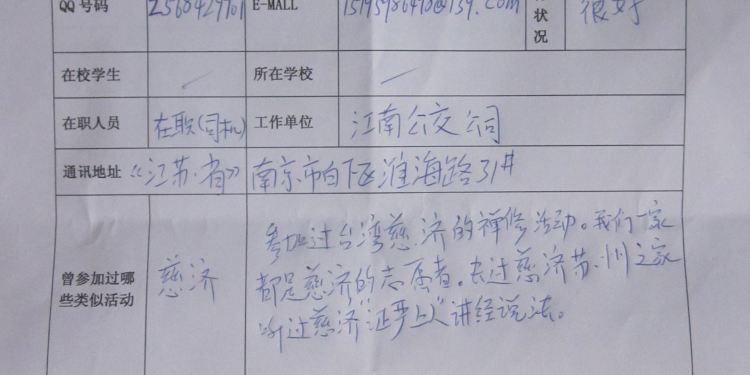 QQ 号码 E-MALL 状况 很好
在校学生 ／ 所在学校 ／
在职人员 在职(司机) 工作单位 江南公交公司
通讯地址 《江苏省》 南京市白下区淮海路31#
曾参加过哪些类似活动 慈济
参加过台湾慈济的禅修活动。我们一家
都是慈济的志愿者。去过慈济苏州之家
听过慈济"证严上人"讲经说法。